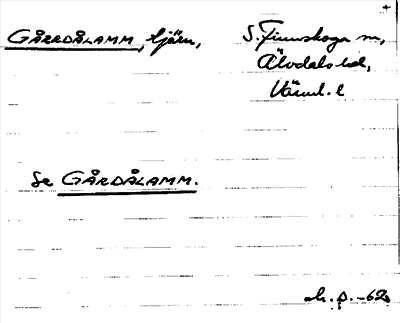 GÅRRDÅLAMM, tjärn, S. Finnskoga sn,
Älvdals hd,
Värml. l
Se GÅRDÅLAMM.
-62